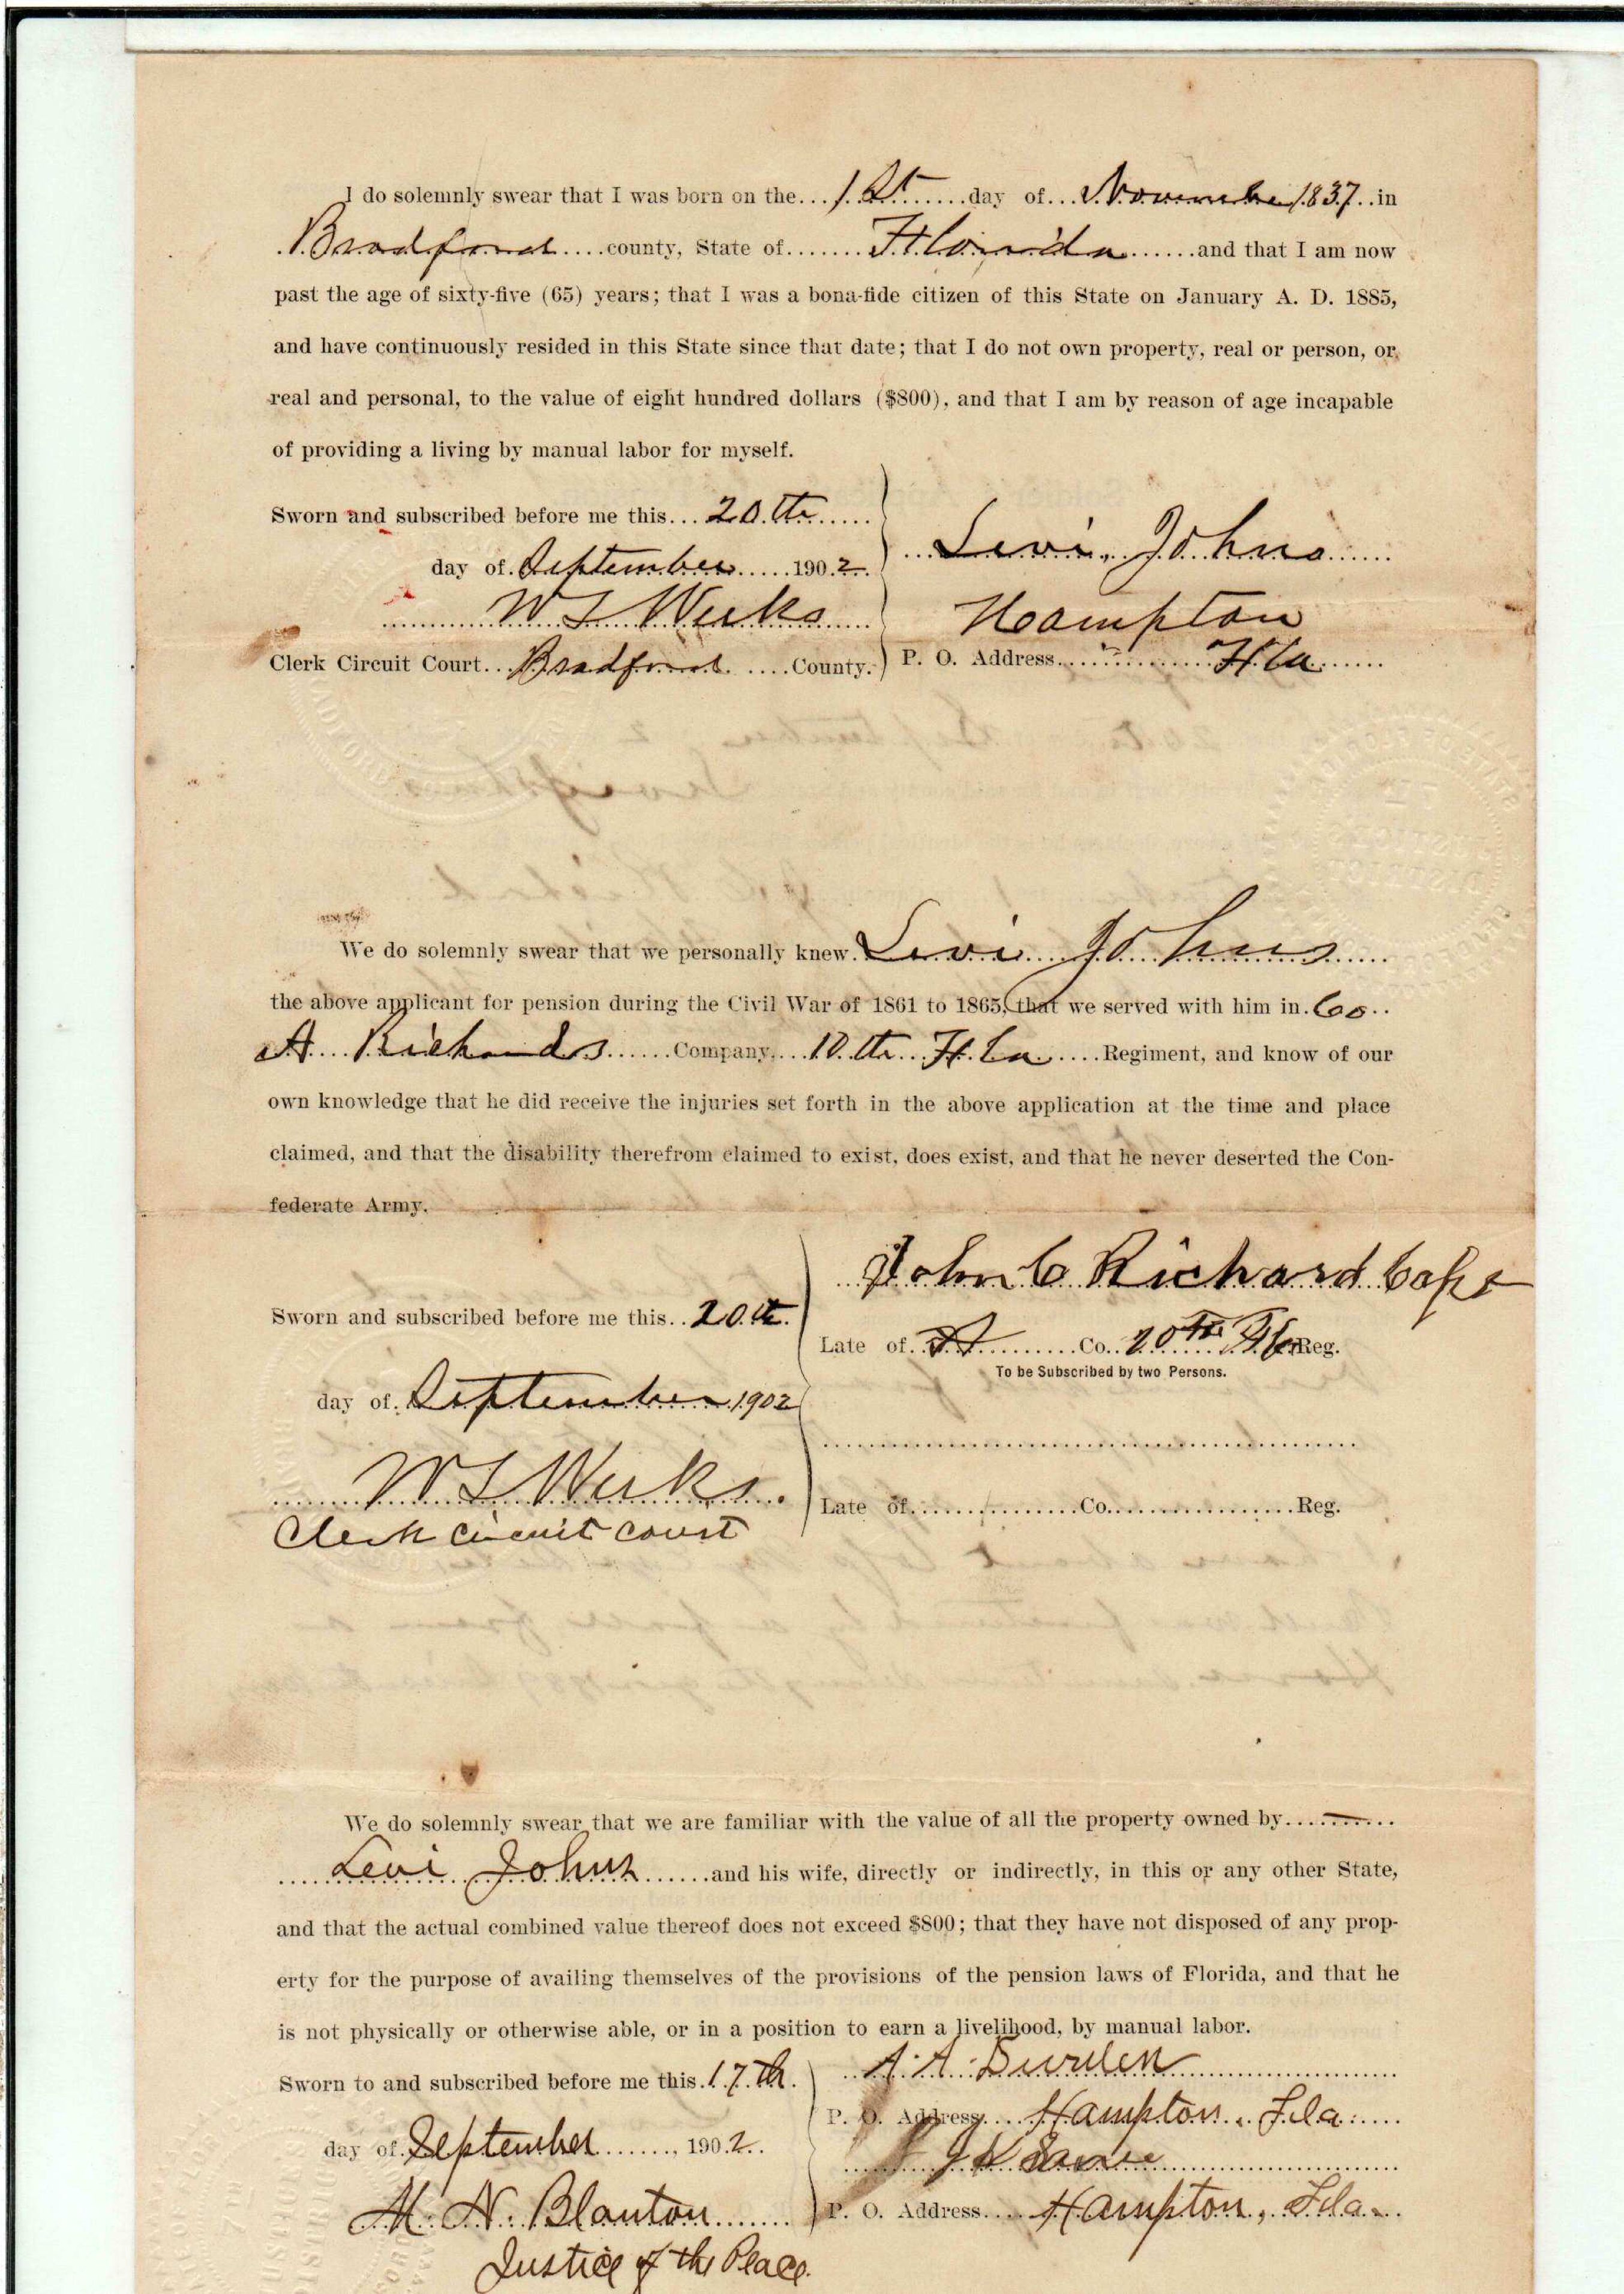 I do solemnly swear that I was born on the... 1st ......day of... November 1837..in
Bradford ....county, State of....... Florida ......and that I am now
past the age of sixty-five (65) years; that I was a bona-fide citizen of this State on January A. D. 1885,
and have continuously resided in this State since that date; that I do not own property, real or person, or
real and personal, to the value of eight hundred dollars ($800), and that I am by reason of age incapable
of providing a living by manual labor for myself.
Sworn and subscribed before me this... 20th .....
day of. September .....190 2.
Levi Johns
W L Weeks
Hampton
Clerk Circuit Court.. Bradford ....County.
P. O. Address............ Fla ......
We do solemnly swear that we personally knew. Levi Johns
the above applicant for pension during the Civil War of 1861 to 1865, that we served with him in. Co..
A.... Richards ......Company,... 10th Fla ....Regiment, and know of our
own knowledge that he did receive the injuries set forth in the above application at the time and place
claimed, and that the disability therefrom claimed to exist, does exist, and that he never deserted the Con-
federate Army.
John C Richard Capt
Sworn and subscribed before me this.. 20th.
Late of. A .........Co.. 10th Fla Reg.
To be Subscribed by two Persons.
day of. September 1902
W L Weeks.
Late of................Co.................Reg.
Clerk Circuit Court
We do solemnly swear that we are familiar with the value of all the property owned by..........
.... Levi Johns ......and his wife, directly or indirectly, in this or any other State,
and that the actual combined value thereof does not exceed $800; that they have not disposed of any prop-
erty for the purpose of availing themselves of the provisions of the pension laws of Florida, and that he
is not physically or otherwise able, or in a position to earn a livelihood, by manual labor.
A. A.
Sworn to and subscribed before me this. 17th.
P. O. Address.... Hampton, Fla.....
day of. September ......., 190 2..
J K
M. N. Blanton
P. O. Address.... Hampton, Fla...
Justice of the Peace.